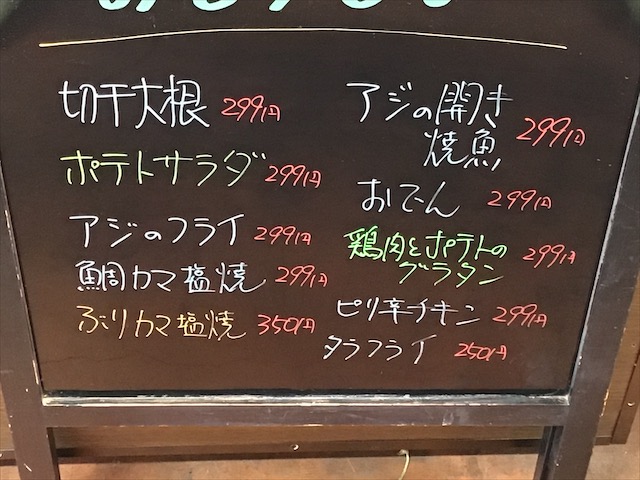 切干大根 299円
ポテトサラダ 299円
アジのフライ 299円
鯛カマ塩焼 299円
ぶりカマ塩焼 350円
アジの開き
焼魚 299円
おでん 299円
鶏肉とポテトの
グラタン 299円
ピリ辛チキン 299円
タラフライ 250円